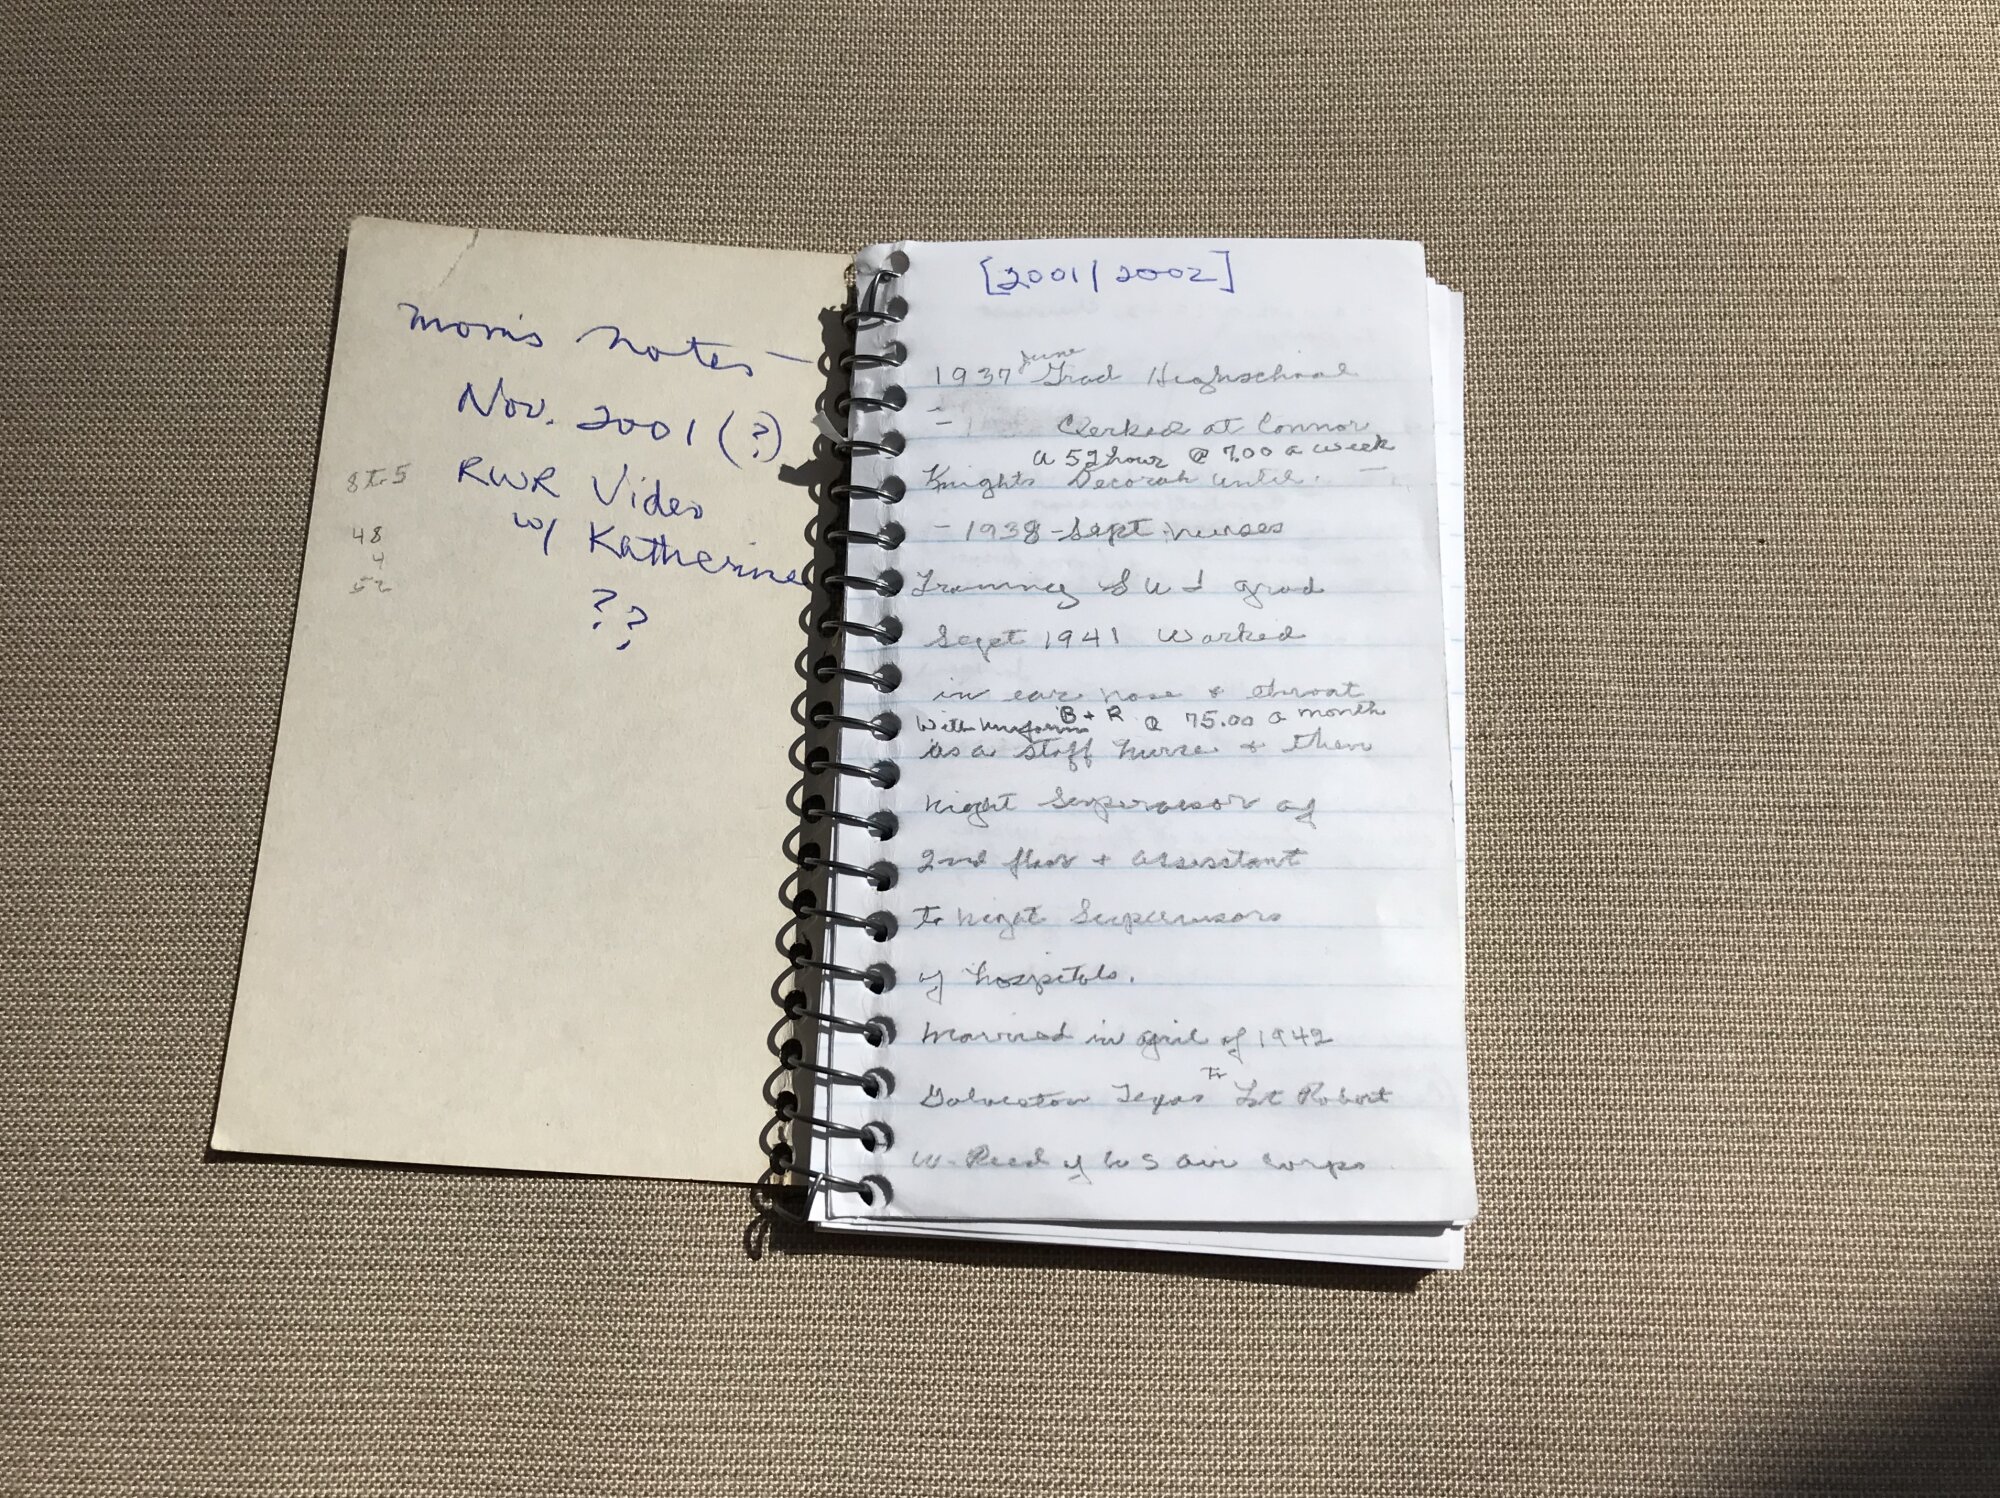 Mom's Notes —
Nov. 2001 (?)
8 to 5
RWR Video
w/ Katherine
48
4
52
??
[2001/2002]
June
1937 Grad Highschool
- Clerked at Connor
a 52 hour @ 7.00 a week
Knights Decorah until. —
- 1938 - Sept nurses
Training S U I grad
Sept 1941 Worked
in ear nose + throat
With uniforms B + R @ 75.00 a month
as a staff nurse + then
night Supervisor of
2nd floor + assistant
to night Supervisors
of hospitals.
Married in April of 1942
to
Galveston Texas Lt Robert
W. Reed of U S air corps